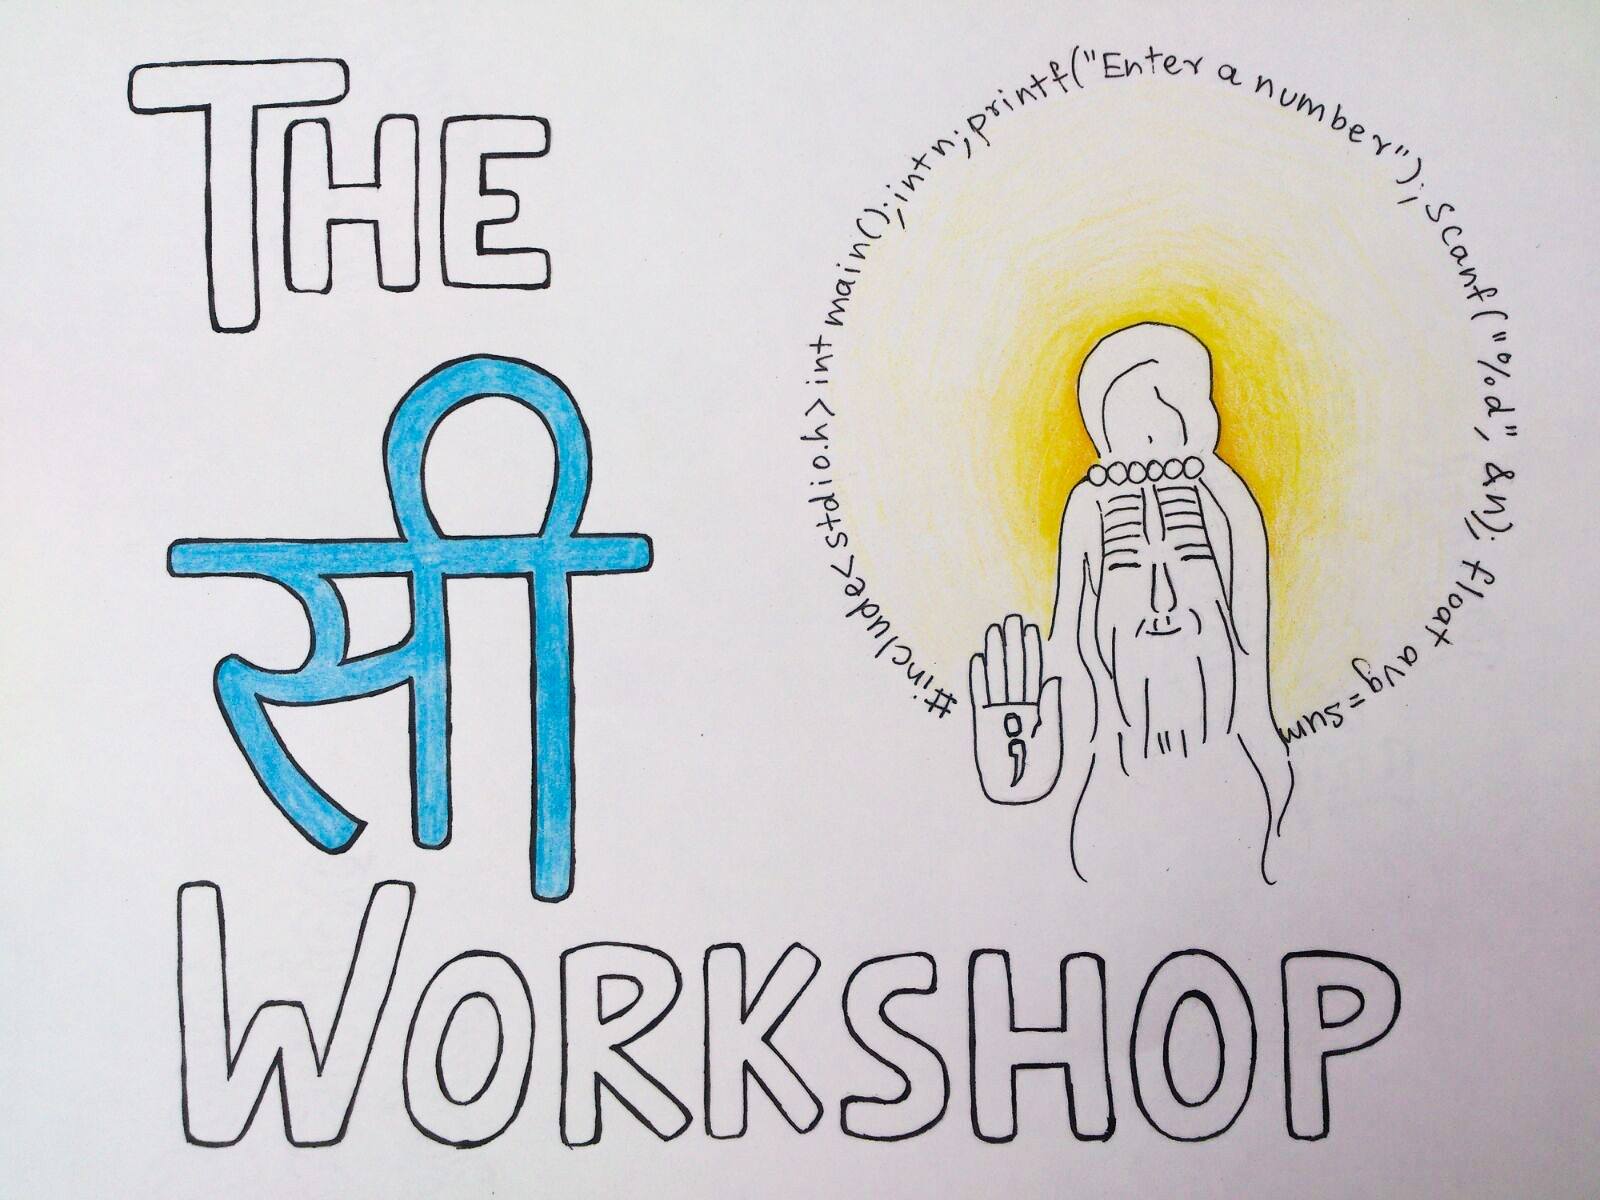 THE
सी
WORKSHOP
#include<stdio.h> int main();int n;printf("Enter a number"); scanf("%d", &n); float avg=sum
;